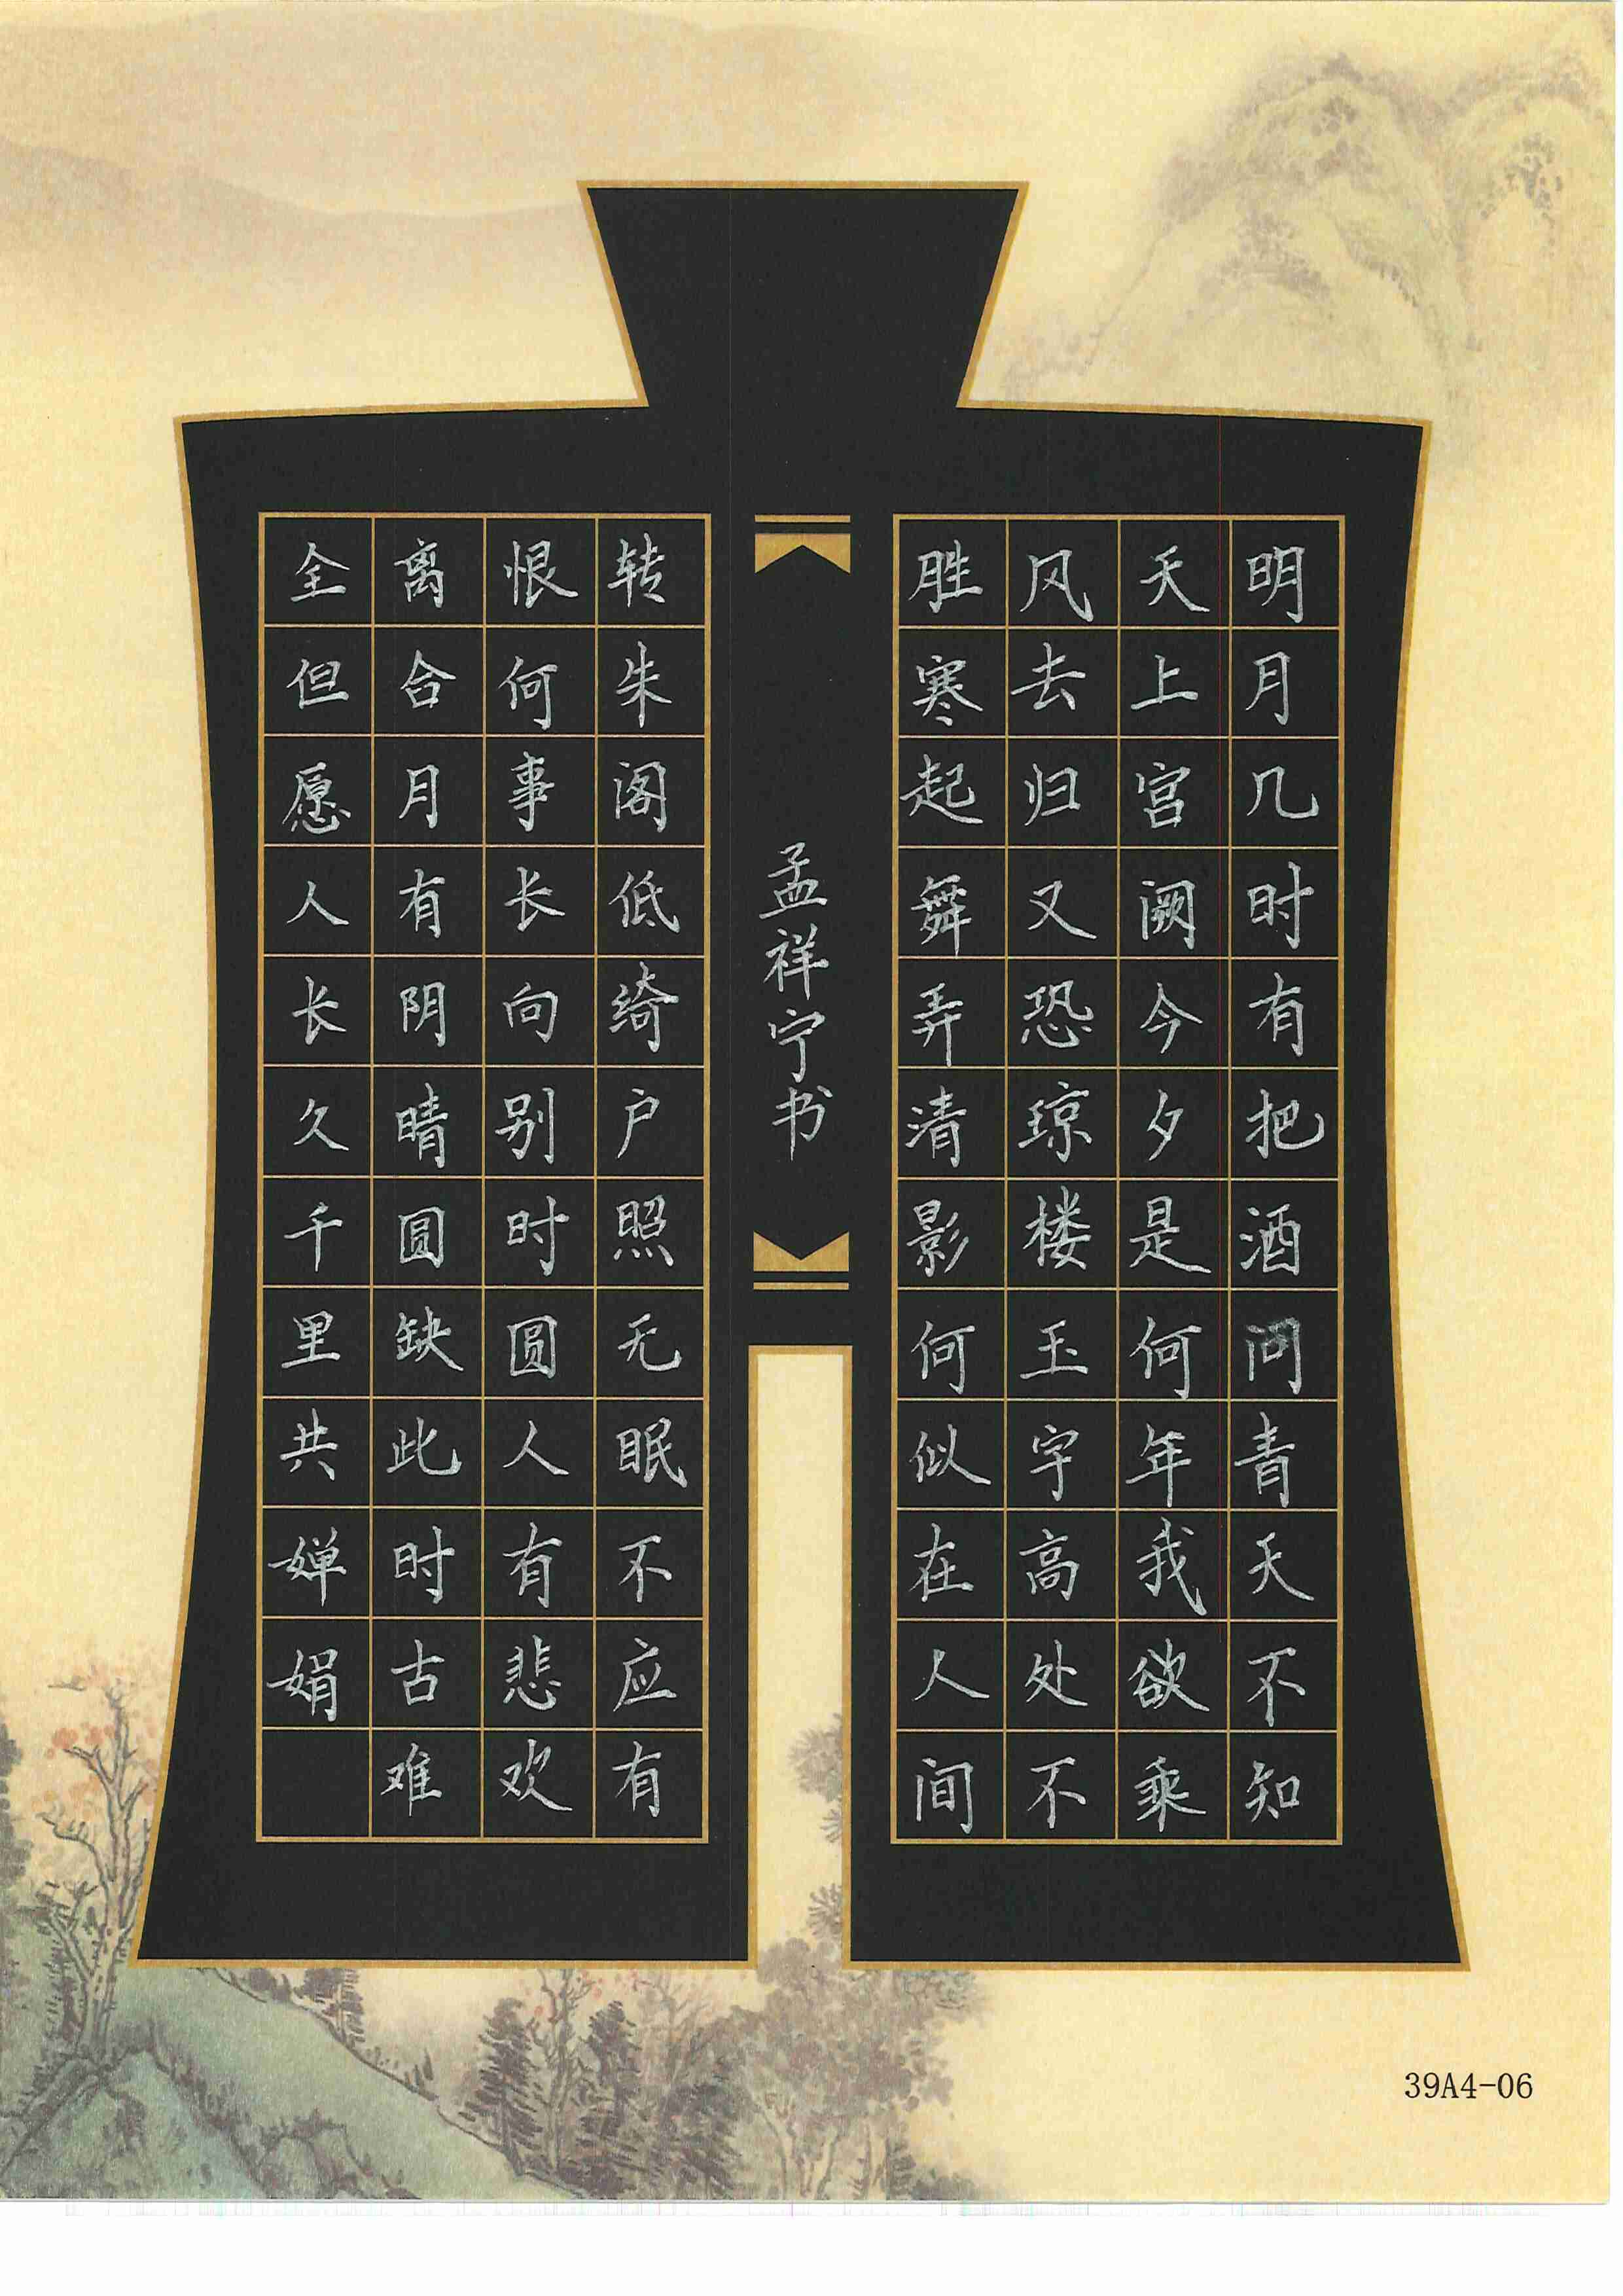 明月几时有把酒问青天不知
天上宫阙今夕是何年我欲乘
风去归又恐琼楼玉宇高处不
胜寒起舞弄清影何似在人间
转朱阁低绮户照无眠不应有
恨何事长向别时圆人有悲欢
离合月有阴晴圆缺此时古难
全但愿人长久千里共婵娟
孟祥宁书
39A4-06